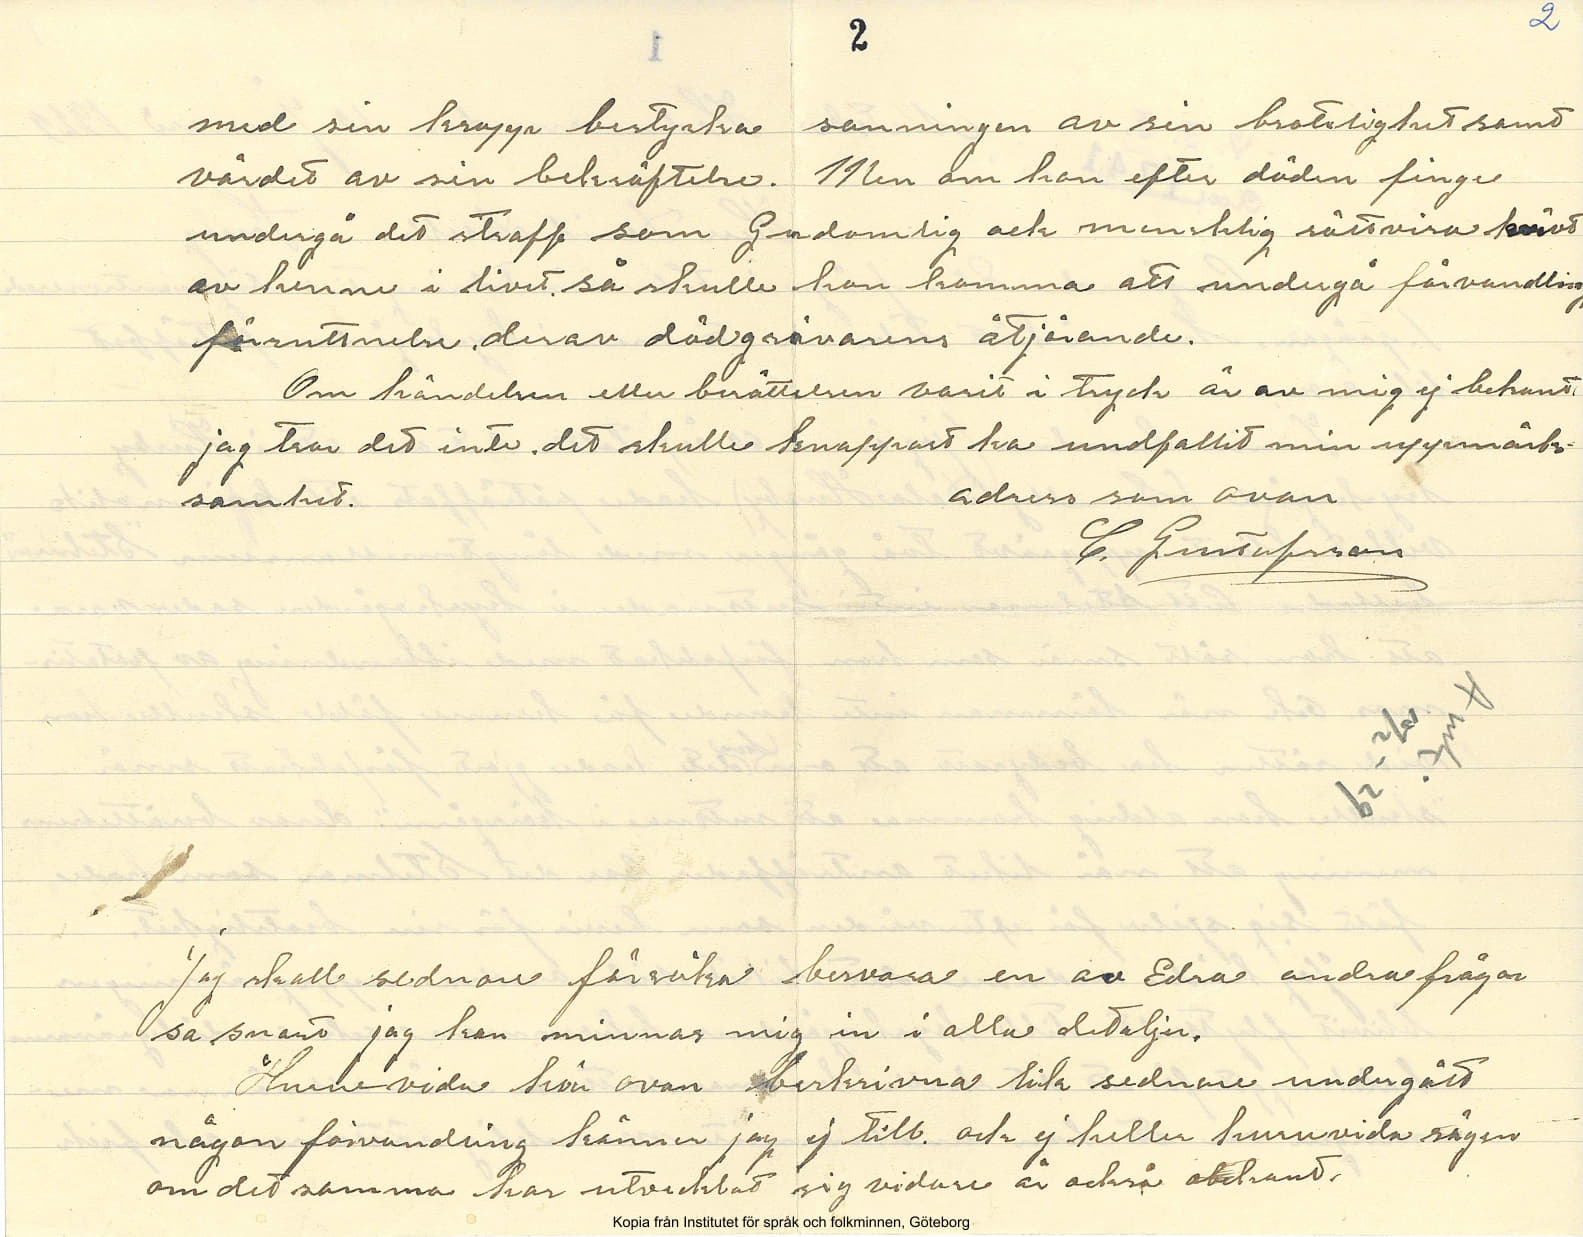 2
2
med sin kropp bestyrka sanningen av sin brotslighet samt
värdet av sin bekräftelse. Men om hon efter döden finge
undergå det straff som Gudomlig ock mensklig rättvisa krävt
av henne i livet. så skulle hon komma att undergå förvandling
förruttnelse. derav dödgrävarens åtjörande.
Om händelsen eller berättelsen varit i tryck är av mig ej bekant.
jag tror det inte. det skulle knappast ha undfallit min uppmärk-
samhet.
adress som ovan
C. Gustafsson
Jag skall sednare försöka besvara en av Edra andra frågor
så snart jag kan minnas mig in i alla detaljer.
Huruvida här ovan beskrivna lik sednare undergått
någon förvandling känner jag ej till. ock ej heller huruvida sägen
om det samma har utvecklat sig vidare är också obekant.
Kopia från Institutet för språk och folkminnen, Göteborg